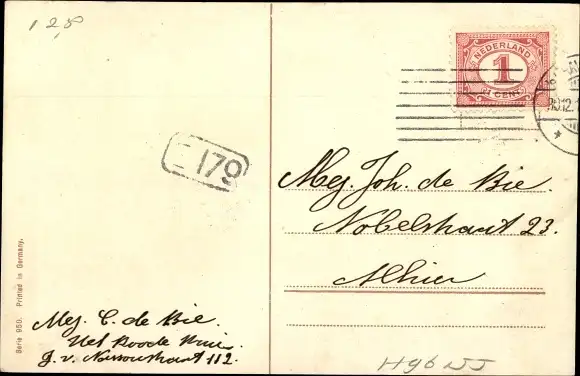 1 2,50
NEDERLAND
1
CENT
10.12.
179
Mej. Joh. de Bie.
Nobelstraat 23.
Alhier
Mej. C. de Bie.
Het Roode Kruis.
J. v. Nassaustraat 112.
Serie 950. Printed in Germany.